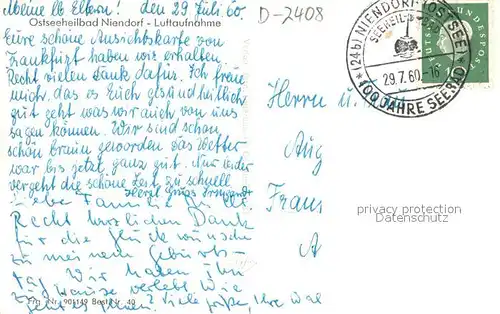 Meine lb Eltern! Den 29 Juli 60.
Ostseeheilbad Niendorf - Luftaufnahme
Eure schöne Ansichtskarte von
Frankfurt haben wir erhalten.
Recht vielen Dank dafür. Ich freue
mich, das es Euch gesundheitlich
gut geht was wir auch von uns
sagen können. Wir sind schon
schön braun geworden das Wetter
war bis jetzt ganz gut. Nur leider
vergeht die schöne Zeit zu schnell
Herzl Grüße Irmgard
Liebe Familie
Recht herzlichen Dank
für die Glückwünsche
zu meinem Geburts-
tag. Wir haben ihn
zu Hause verlebt Wie
Frg. Nr. 901149 Best. Nr. 40
geht es Ihnen? Viele Grüße, Ihre
D-2408
(24b) NIENDORF (OSTSEE)
SEEHEILBAD
29.7.60.-16
100 JAHRE SEEBAD
DEUTSCHE BUNDESPOST
Herrn u.
Aug
Frans
A
privacy protection
Datenschutz